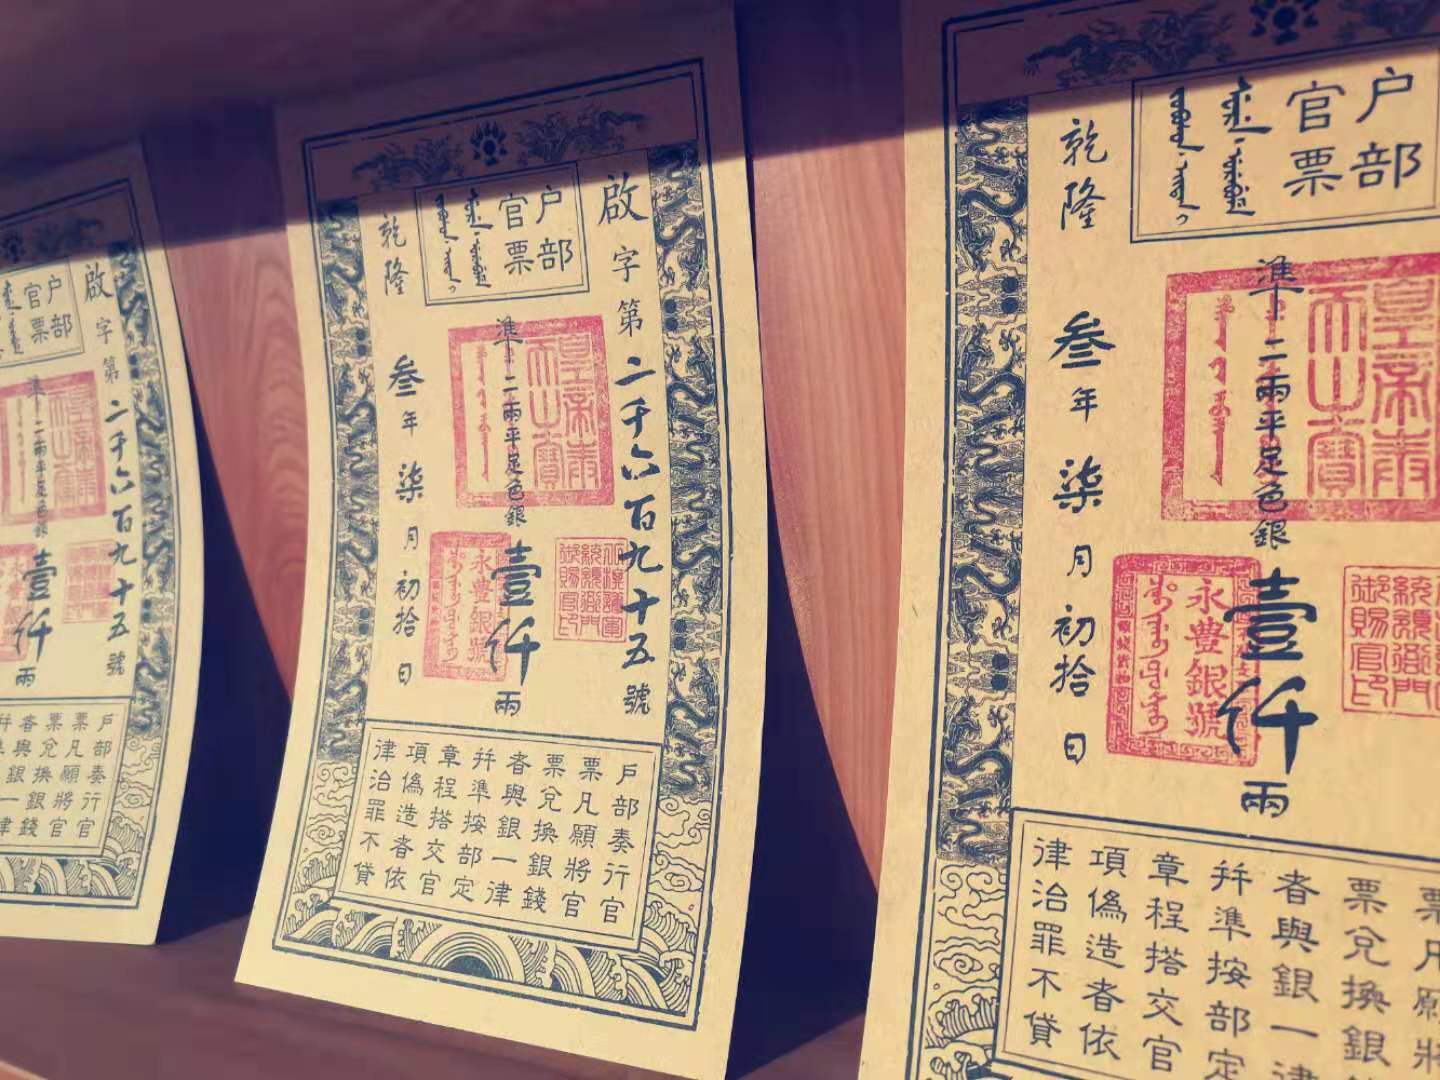 啟字第二千六百九十五號
户部
官票
準二兩平足色銀壹仟兩
户部奏行官
票凡願將官
票兌換銀錢
者與銀一律
啟字第二千六百九十五號
户部
官票
皇帝奉
天之寶
準二兩平足色銀壹仟兩
統領衙門
御賜官印
永豐銀號
乾隆叁年柒月初拾日
户部奏行官
票凡願將官
票兌換銀錢
者與銀一律
幷準按部定
章程搭交官
項偽造者依
律治罪不貸
户部
官票
皇帝奉
天之寶
準二兩平足色銀壹仟兩
統領衙門
御賜官印
永豐銀號
乾隆叁年柒月初拾日
票凡願將
票兌換銀
者與銀一律
幷準按部定
章程搭交官
項偽造者依
律治罪不貸